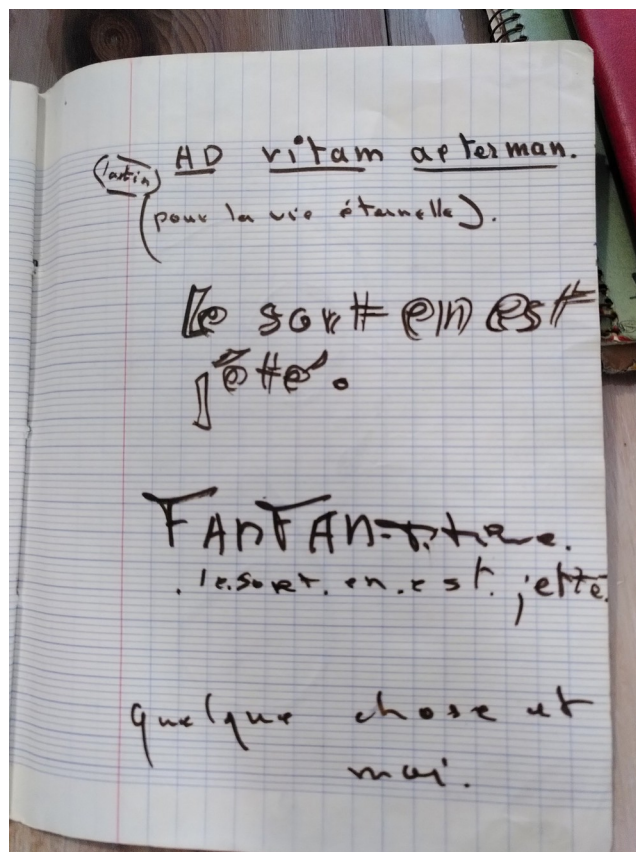 (latin) AD vitam aeterman.
(pour la vie éternelle).
le sort en est
jeté.
FANFAN-
. le.sort. en.est. jetté.
quelque chose et
moi.